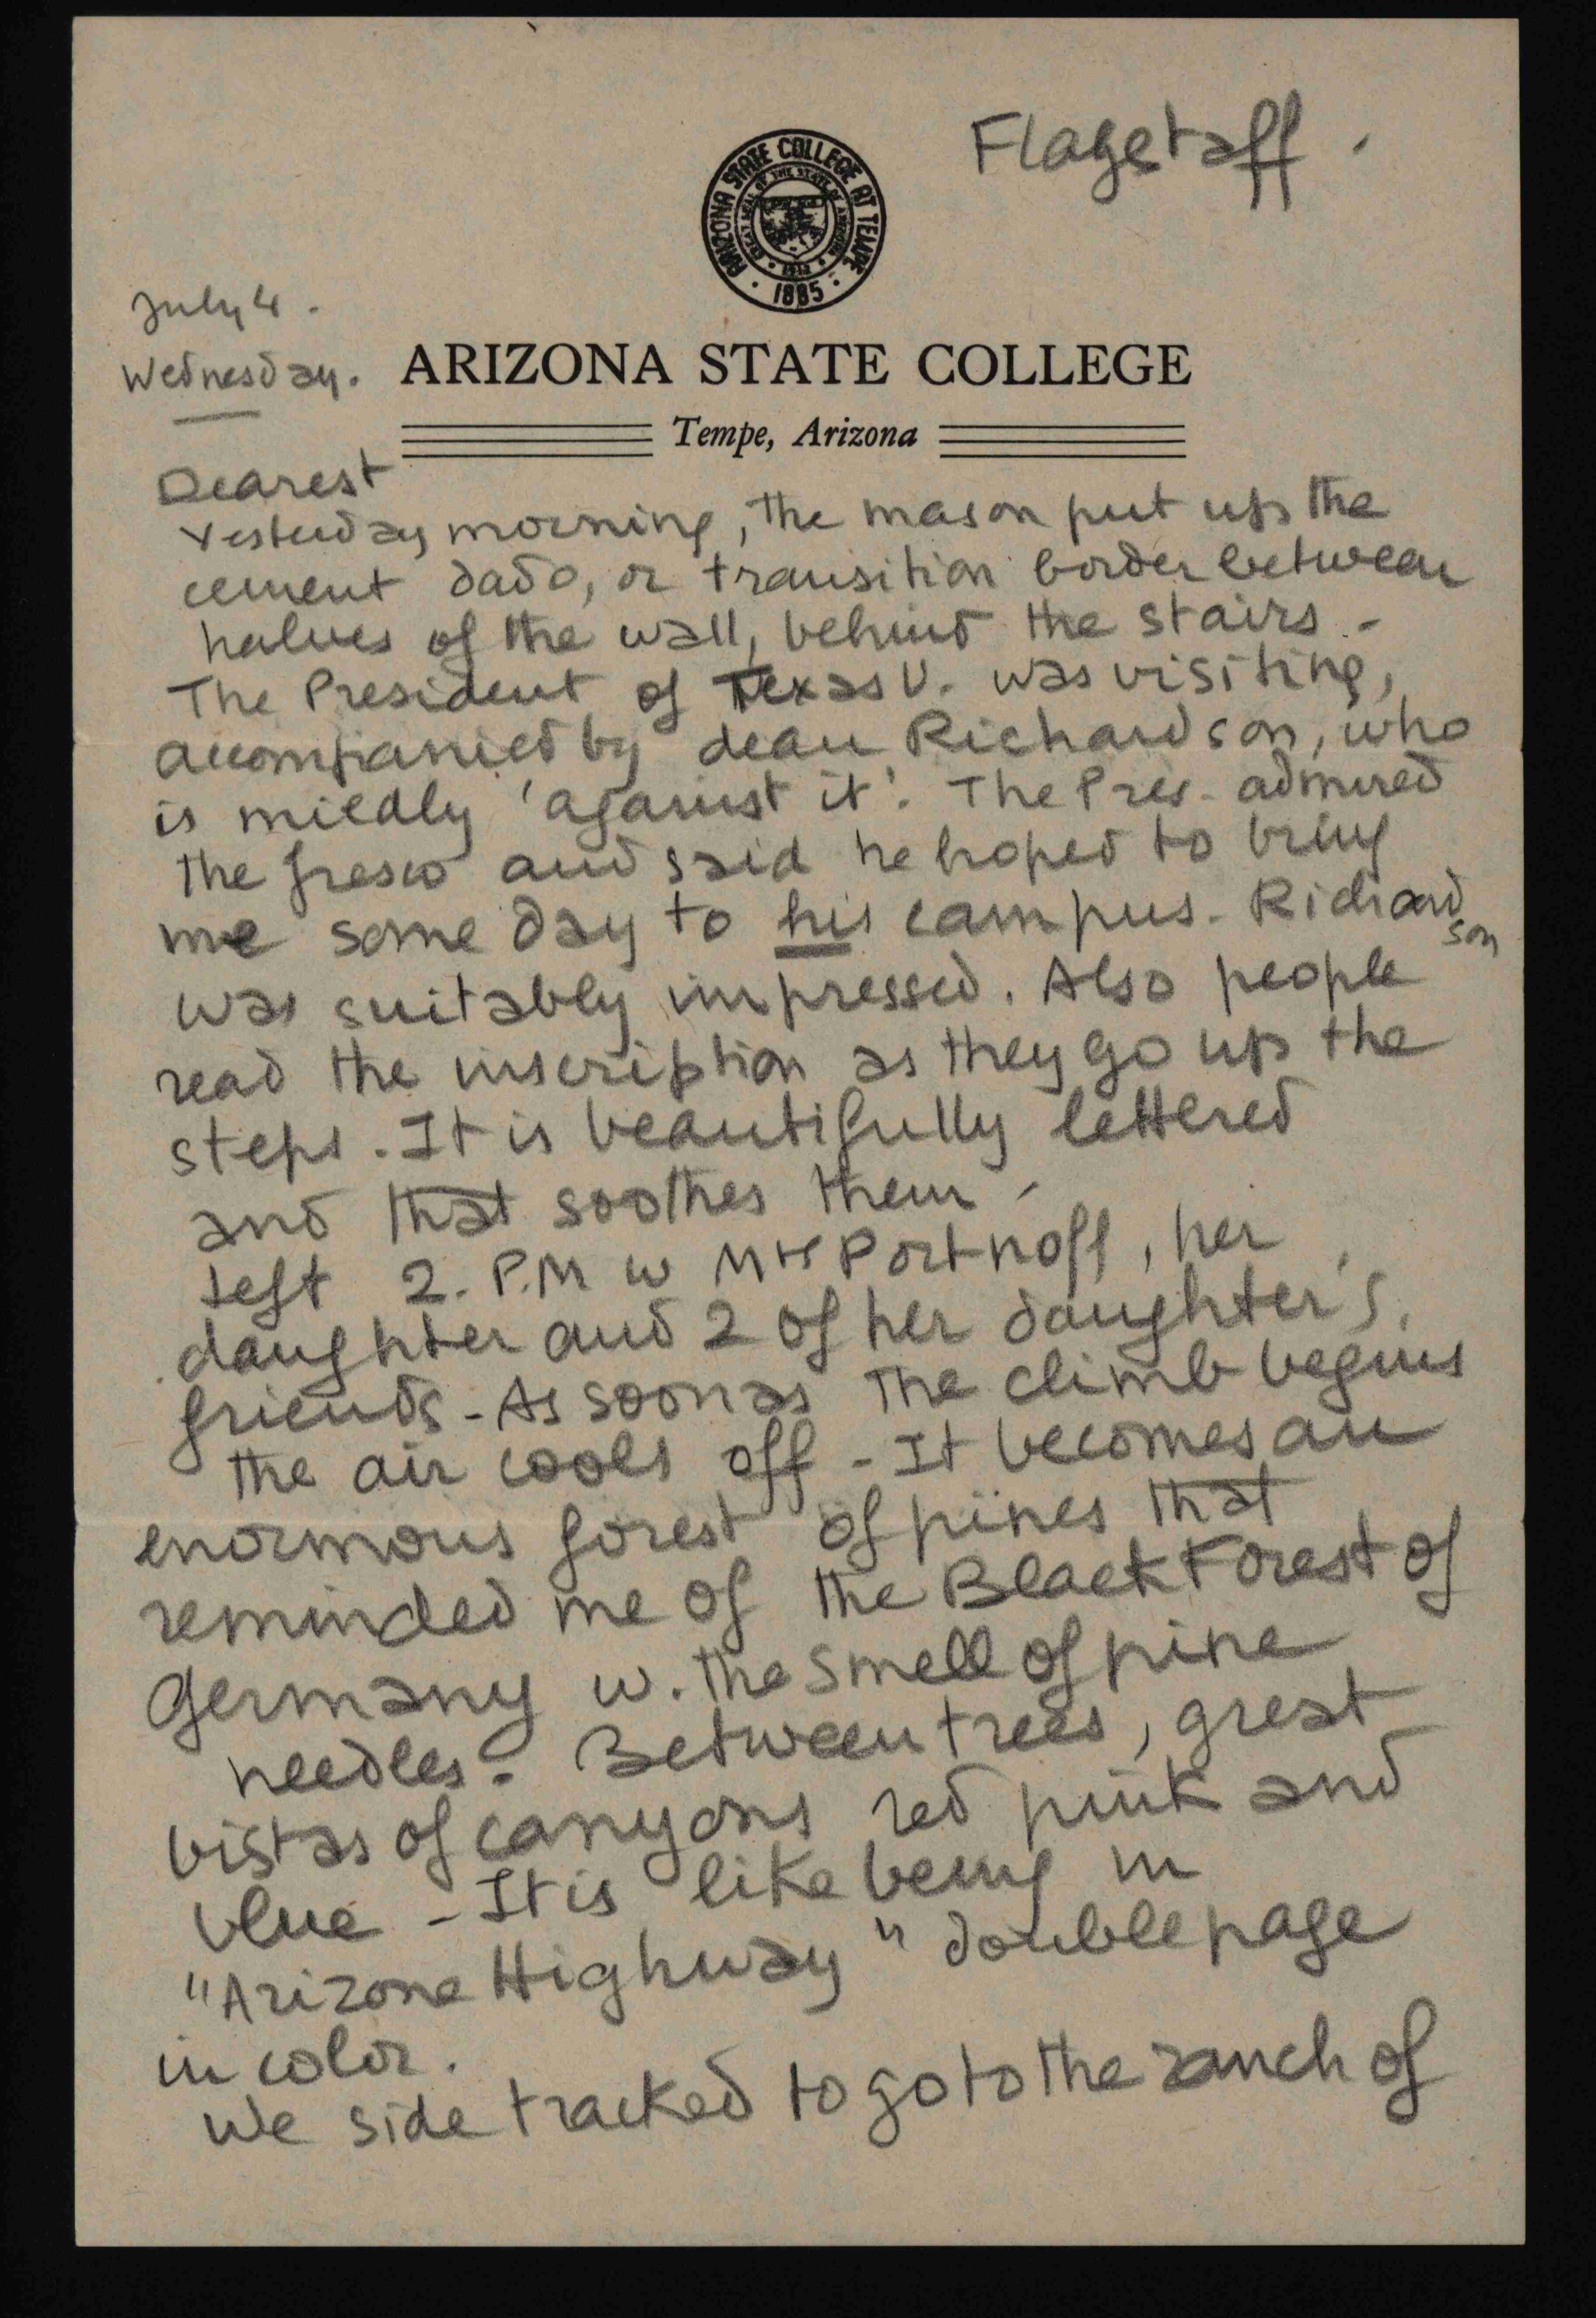 Flagstaff.
ARIZONA STATE COLLEGE AT TEMPE
GREAT SEAL OF THE STATE OF ARIZONA
1912
1885
July 4.
Wednesday.
ARIZONA STATE COLLEGE
Tempe, Arizona
Dearest
Yesterday morning, the mason put up the
cement dado, or transition border between
halves of the wall, behind the stairs -
The President of Texas U. was visiting,
accompanied by dean Richardson, who
is mildly 'against it'. The Pres. admired
the fresco and said he hoped to bring
me some day to his campus. Richardson
was suitably impressed. Also people
read the inscription as they go up the
steps. It is beautifully lettered
and that soothes them -
Left 2. P.M w Mrs Portnoff, her
daughter and 2 of her daughter's
friends - As soon as the climb begins
the air cools off - It becomes an
enormous forest of pines that
reminded me of the Black Forest of
Germany w. the smell of pine
needles - Between trees, great
vistas of canyons red pink and
blue - It is like being in
"Arizona Highway" double page
in color.
We side tracked to go to the ranch of